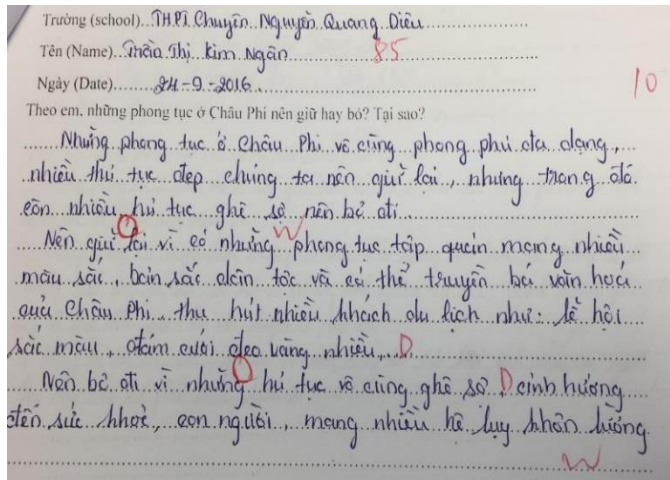 Trường (school)..THPT Chuyên Nguyễn Quang Diêu
Tên (Name)..Trần Thị Kim Ngân 85
Ngày (Date)..24-9-2016 10
Theo em, những phong tục ở Châu Phi nên giữ hay bỏ? Tại sao?
Những phong tục ở Châu Phi vô cùng phong phú đa dạng,
nhiều thủ tục đẹp chúng ta nên giữ lại, nhưng trong đó
còn nhiều hủ tục ghê sợ nên bỏ đi
Nên giữ lại vì có những phong tục tập quán mang nhiều
màu sắc, bản sắc dân tộc và có thể truyền bá văn hoá
của Châu Phi, thu hút nhiều khách du lịch như: lễ hội
sắc màu, đám cưới đeo vàng nhiều, D
Nên bỏ đi vì những hủ tục vô cùng ghê sợ, D ảnh hưởng
đến sức khoẻ, con người, mang nhiều hệ luỵ khôn lường